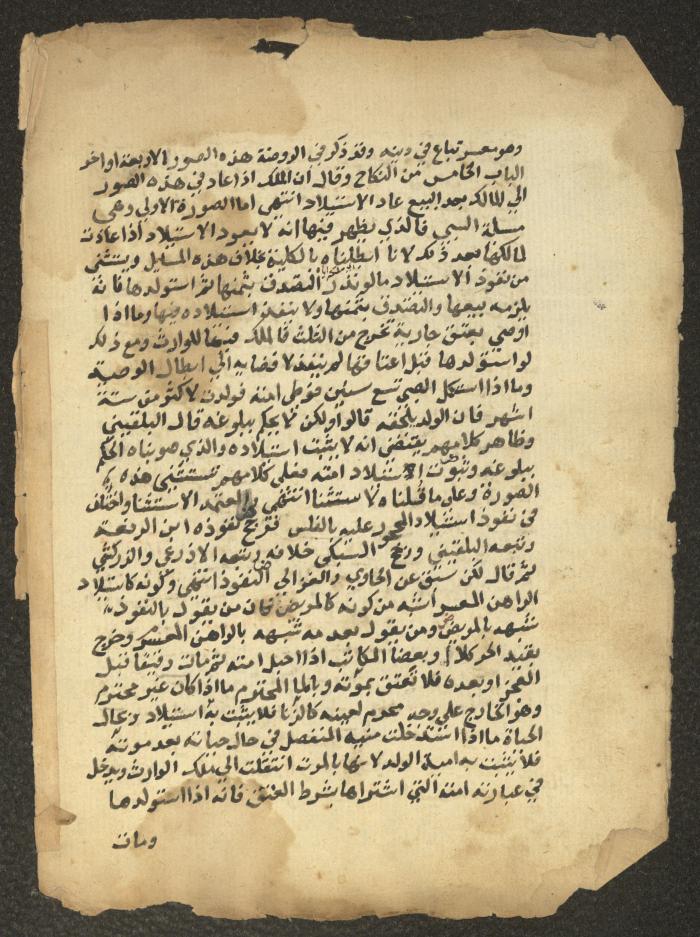 وهو معسر تباع في دينه وقد ذكر في الروضة هذه الصور الاربعة اواخر
الباب الخامس من النكاح وقال ان الملك اذا عاد في هذه الصور
الي المالك بعد البيع عاد الاستيلاد انتهي اما الصورة الاولي وهي
مسلة السبي فالذي يظهر فيها انه لا يعود الاستيلاد اذا عادت
لمالكها بعد ذلك لانا ابطلناه بالكلية بخلاف هذه المسايل ويستثني
من نفوذ الاستيلاد مالو نذر التصدق بثمنها ثم استولدها فانه
يلزمه بيعها والتصدق بثمنها ولا ينفذ استيلاده فيها وما اذا
اوصي بعتق جارية تخرج من الثلث فالملك فيها للوارث ومع ذلك
لو استولدها قبل اعتاقها لم ينفذ لافضايه الي ابطال الوصية
وما اذا استكمل الصبي تسع سنين فوطي امته فولدت لاكثر من ستة
اشهر فان الولد يلحقه قالوا ولكن لا يحكم ببلوغه قال البلقيني
وظاهر كلامهم يقتضي انه لا يثبت استيلاده والذي صوبناه الحكم
ببلوغه وثبوت استيلاد امته فعلي كلامهم تستثني هذه
الصورة وعلي ما قلناه لا ستثنا انتهي والمعتمد الاستثنا واختلف
في نفوذ استيلاد المحجور عليه بالفلس فرجح نفوذه ابن الرفعة
وتبعه البلقيني ورجح السبكي خلافه وتبعه الاذرعي والزركشي
ثم قال لكن سبق عن الحاوي والغزالي النفوذ انتهي وكونه كاستيلاد
الراهن المعسر اشبه من كونه كالمريض فان من يقول بالنفوذ
شبهه بالمريض ومن يقول بعدمه شبهه بالراهن المعسر وخرج
بقيد الحر كلا او بعضا المكاتب اذا احبل امته ثم مات رقيقا قبل
العجز او بعده فلا تعتق بموته وبالما المحترم ما اذا كان غير محترم
وهو الخارج علي وجه محرم لعينه كالزنا فلا يثبت به استيلاد وبحال
الحياة ما اذا استدخلت منيه المنفصل في حال حياته بعد موته
فلا يثبت به امية الولد لانها بالموت انتقلت الي ملك الوارث ويدخل
في عبارته امته التي اشتراها بشرط العتق فانه اذا استولدها
ومات